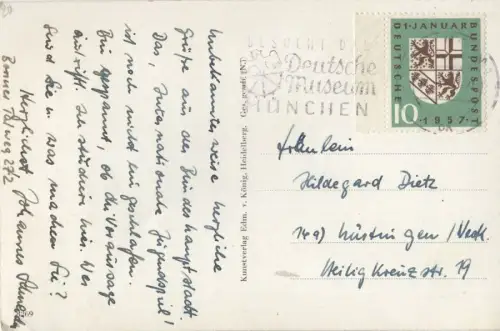 Unbekannterweise herzliche
Grüße aus der Bundeshauptstadt.
Das "Internationale Jugendspiel"
ist noch nicht eingeschlafen.
Bin gespannt, ob die Voraussage
eintrifft. Ich studiere hier. Wer
sind Sie u. was machen Sie?
Herzlichst Johannes
Bonner Talweg 272
Kunstverlag Edm. v. König, Heidelberg. Ges. gesch.
BESUCHT DAS
Deutsche
Museum
MÜNCHEN
1. JANUAR
DEUTSCHE
BUNDESPOST
10
1957
Fräulein
Hildegard Dietz
14a) Nürtingen/Neck.
Heilig Kreuzstr. 19